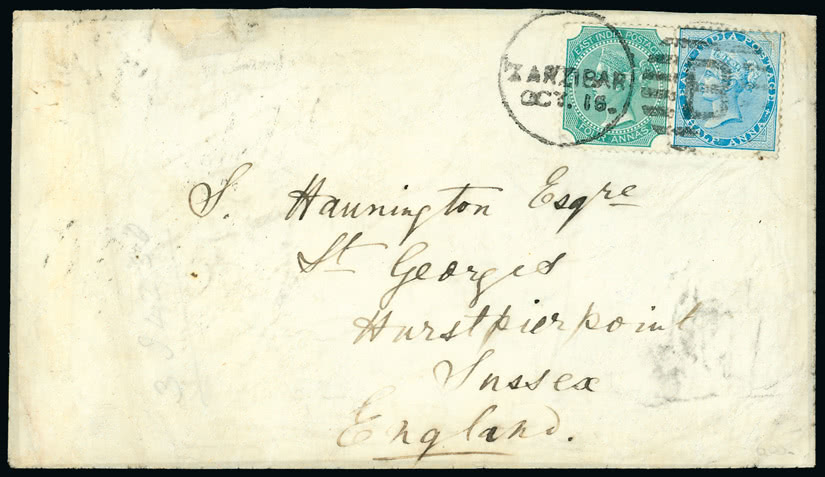 EAST INDIA POSTAGE
FOUR ANNAS
EAST INDIA POSTAGE
HALF ANNA
ZANZIBAR
OCT. 16.
S. Hannington Esqre
St Georges
Hurstpierpoint
Sussex
England.